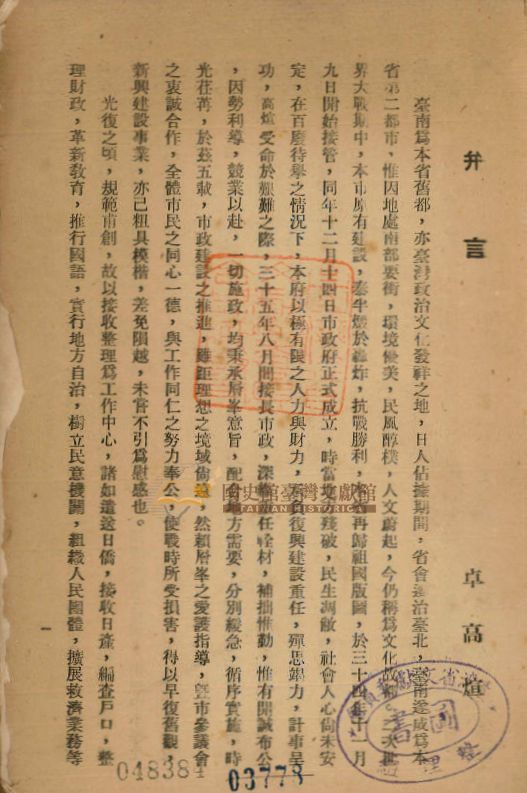 弁言
卓高煊
臺南為本省舊都，亦臺灣政治文化發祥之地，日人佔據期間，省會遷治臺北，臺南遂成為本
省第二都市，惟因地處南部要衝，環境優美，民風醇樸，人文蔚起，今仍稱為文化故都。二次世
界大戰期中，本市原有建設，泰半燬於轟炸，抗戰勝利，再歸祖國版圖，於三十四年十一月
九日開始接管，同年十二月十四日市政府正式成立，時當殘破，民生凋敝，社會人心尚未安
定，在百廢待舉之情況下，本府以極有限之人力與財力，負復興建設重任，殫思竭力，計事呈
功，高煊受命於艱難之際，三十五年八月間接長市政，深任輇材，補拙惟勤，惟有開誠布公
，因勢利導，競業以赴，一切施政，均秉承層峯意旨，配合地方需要，分別緩急，循序實施，時
光荏苒，於茲五載，市政建設之推進，雖距理想之境域尚遠，然賴層峯之愛護指導，暨市參議會
之衷誠合作，全體市民之同心一德，與工作同仁之努力奉公，使戰時所受損害，得以早復舊觀，
新興建設事業，亦已粗具模楷，差免隕越，未嘗不引為慰感也。
光復之頃，規範甫創，故以接收整理為工作中心，諸如遣送日僑，接收日產，編查戶口，整
理財政，革新教育，推行國語，實行地方自治，樹立民意機關，組織人民團體，擴展救濟業務等
一
國史館臺灣文獻館
TAIWAN HISTORICA
圖書
整理
048384
03778